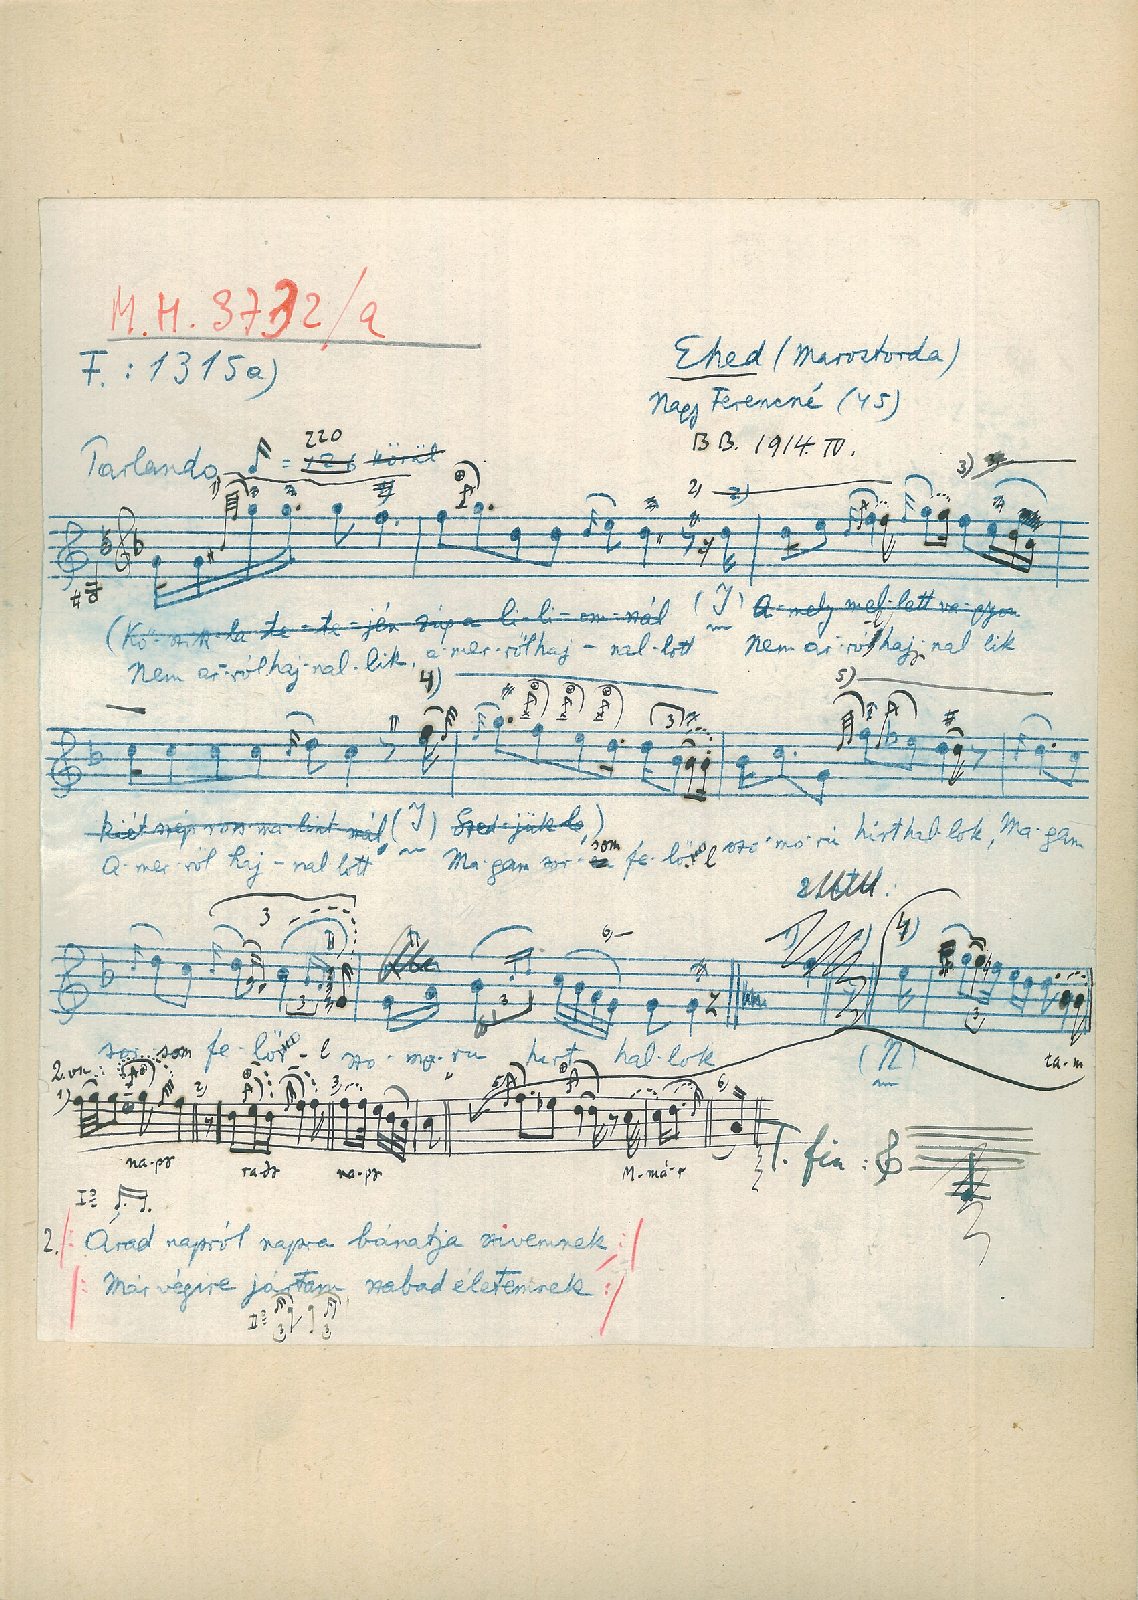 M.H. 3732/a
F.: 1315a)
Ehed (Marostorda)
Nagy Ferencné (45)
B B. 1914. IV.
Parlando = 220 126 körül
1) 2) 3)
(Kő-szik-la te-te-jén szép a li-li-om-szál (I) A-mely mel-lett va-gyon
Nem ar-ról haj-nal-lik, a-mer-ről haj-nal-lott Nem ar-ról haj-nal lik
4) 5)
3
két szép ros-ma-lint szál, (I)
A-mer-ről haj-nal lott Ma-gam sor-som fe-lől szo-mo-rú hírt hal-lok, Ma-gam
3 3 3 6) 4)
sor-som fe-lől szo-mo-rú hírt hal-lok (II) ta-m
2. vsz.:
1) 2) 3) 5) 6)
na-pr ra-dz na-pr M-má-r
T. fin :
2. /: Árad napról napra bánatja szivemnek :/
/: Már végire jártam szabad életemnek :/